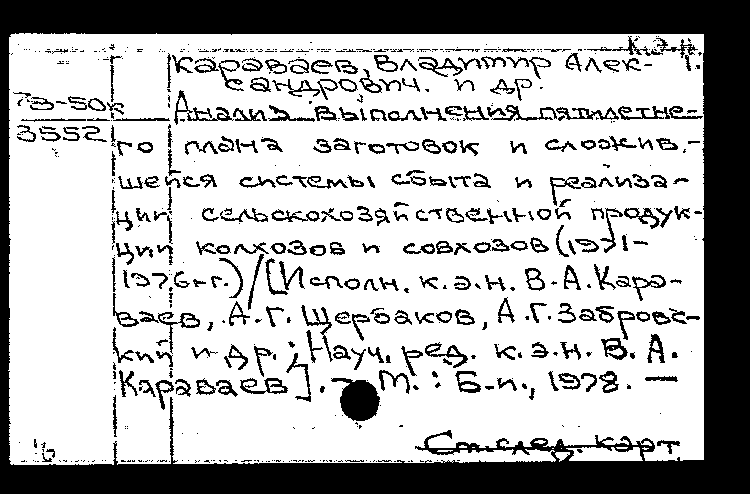 К.Э.Н.
Караваев, Владимир Алек- 1.
сандрович. и др.
78-50к Анализ выполнения пятилетне-
3552 го плана заготовок и сложив.-
шейся системы сбыта и реализа-
ции сельскохозяйственной продук-
ции колхозов и совхозов (1971-
1976гг.) / [Исполн. к.э.н. В.А. Кара-
ваев, А.Г. Щербаков, А.Г. Забровс-
кий и др.; Науч. ред. к.э.н. В. А.
Караваев]. - М. : Б.и., 1978. —
См. след. карт